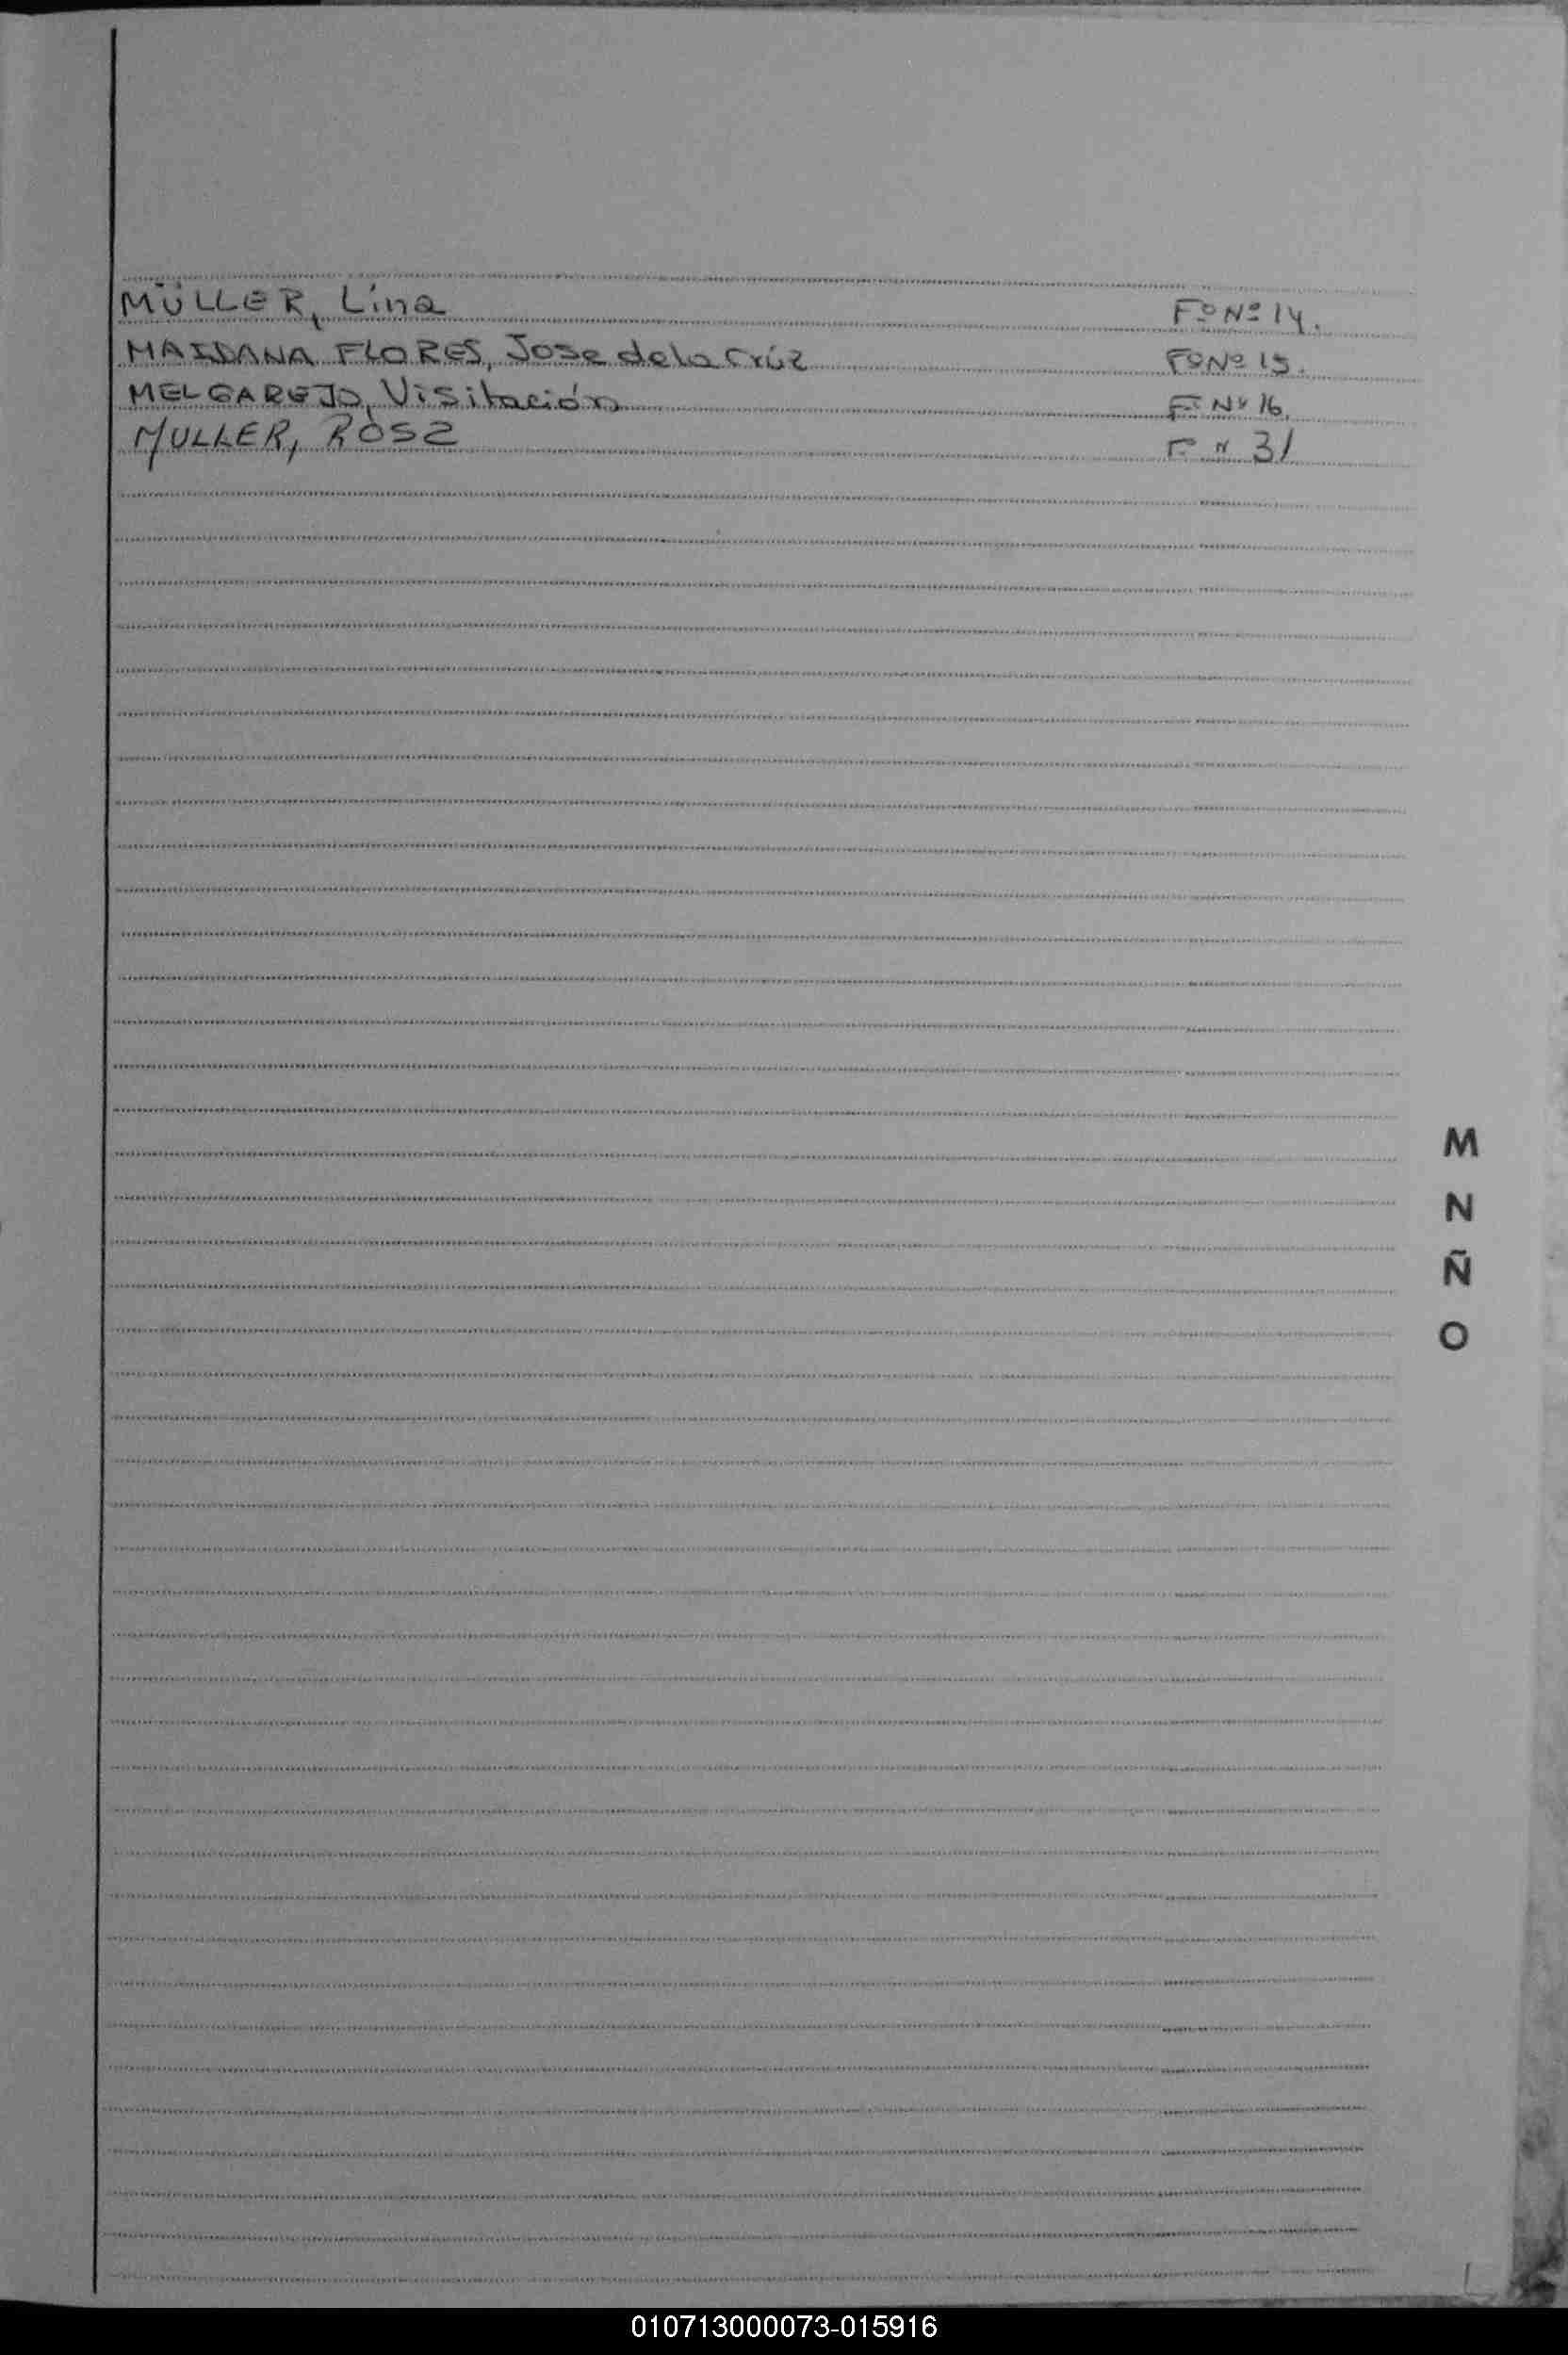 MÜLLER, Lina Fº Nº 14.
MAIDANA FLORES, Jose de la Crúz Fº Nº 15.
MELGAREJO, Visitación Fº Nº 16.
MULLER, ROSA Fº N 31
M
N
Ñ
O
010713000073-015916